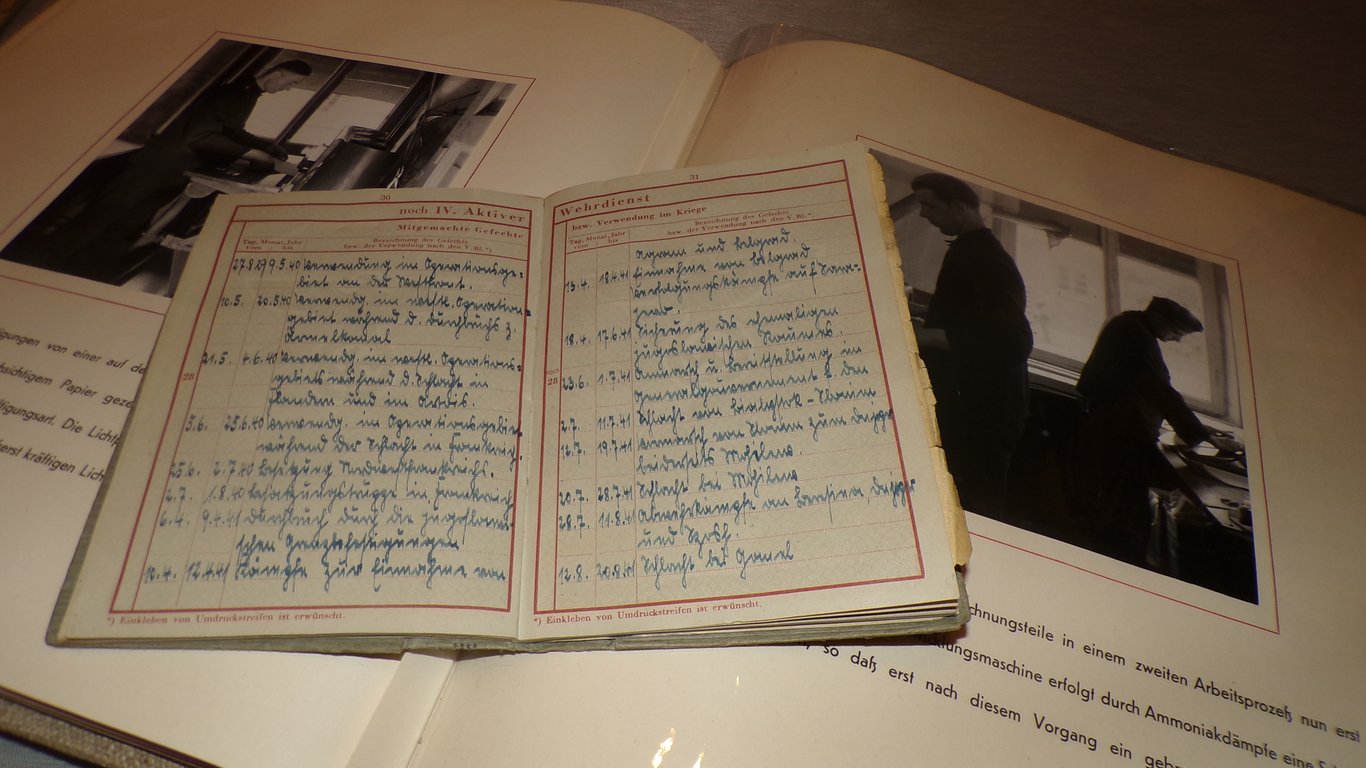 30
noch IV. Aktiver
Mitgemachte Gefechte
Tag, Monat, Jahr
vom bis
Bezeichnung des Gefechts
bzw. der Verwendung nach den V. Bl.*)
27.8.39 9.5.40 Verwendung im Operationsge-
biet an der Westfront.
10.5. 20.5.40 Verwendg. im westl. Operations-
gebiet während d. Durchbruchs z.
Ärmelkanal
28
21.5. 4.6.40 Verwendg. im westl. Operations-
gebiet während d. Schlacht in
Flandern und im Artois.
5.6. 25.6.40 Verwendg. im Operationsgebiet
während der Schlacht in Frankreich
25.6. 2.7.40 Besetzung Nordwestfrankreichs.
2.7. 1.8.40 Besatzungstruppe in Frankreich
6.4. 9.4.41 Durchbruch durch die jugoslawi-
schen Grenzbefestigungen
10.4. 12.4.41 Kämpfe zur Einnahme von
*) Einkleben von Umdruckstreifen ist erwünscht.
31
Wehrdienst
bzw. Verwendung im Kriege
Tag, Monat, Jahr
vom bis
Bezeichnung des Gefechts
bzw. der Verwendung nach den V. Bl.*)
Agram und Belgrad.
Einnahme von Belgrad
13.4. 18.4.41 Verfolgungskämpfe auf Sara-
jewo.
18.4. 17.6.41 Sicherung des ehemaligen
jugoslawischen Raumes.
noch
28
23.6. 1.7.41 Anmarsch u. Bereitstellung im
Generalgouvernement f. den
2.7. 11.7.41 Schlacht von Bialystok-Minsk
12.7. 19.7.41 Vormarsch von zum Dnjepr
beiderseits Mohilew.
20.7. 28.7.41 Schlacht bei Mohilew
28.7. 11.8.41 Abwehrkämpfe an Dnjepr
und Ssosh
12.8. 20.8.41 Schlacht bei Gomel
*) Einkleben von Umdruckstreifen ist erwünscht.
gungen von einer auf de
chtsichtigem Papier geze
ltigungsart. Die Licht
erst kräftigen Lich
chnungsteile in einem zweiten Arbeitsprozeß nun erst
klungsmaschine erfolgt durch Ammoniakdämpfe eine
so daß erst nach diesem Vorgang ein